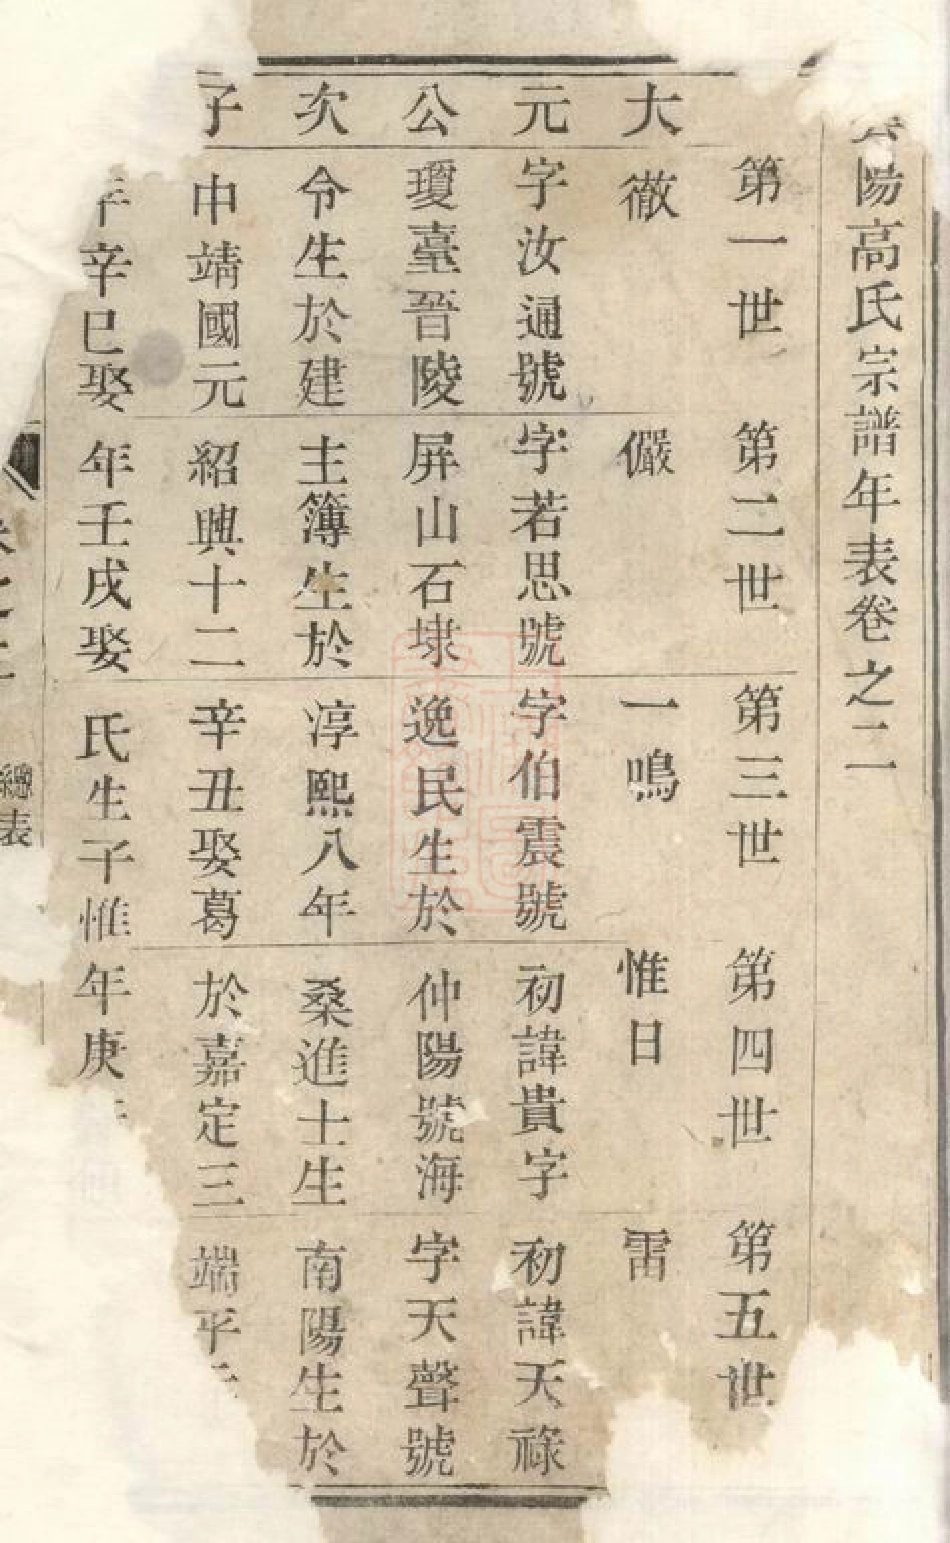 陽高氏宗譜年表卷之二
第一世 第二世 第三世 第四世 第五世
大 徹 儼 一鳴 惟日 雷
元 字汝通號 字若思號 字伯震號 初諱貴字 初諱天祿
公 瓊臺晉陵 屏山石埭 逸民生於 仲陽號海 字天聲號
次 令生於建 主簿生於 淳熙八年 桑進士生 南陽生於
子 中靖國元 紹興十二 辛丑娶葛 於嘉定三 端平
年辛巳娶 年壬戌娶 氏生子惟 年庚
總表